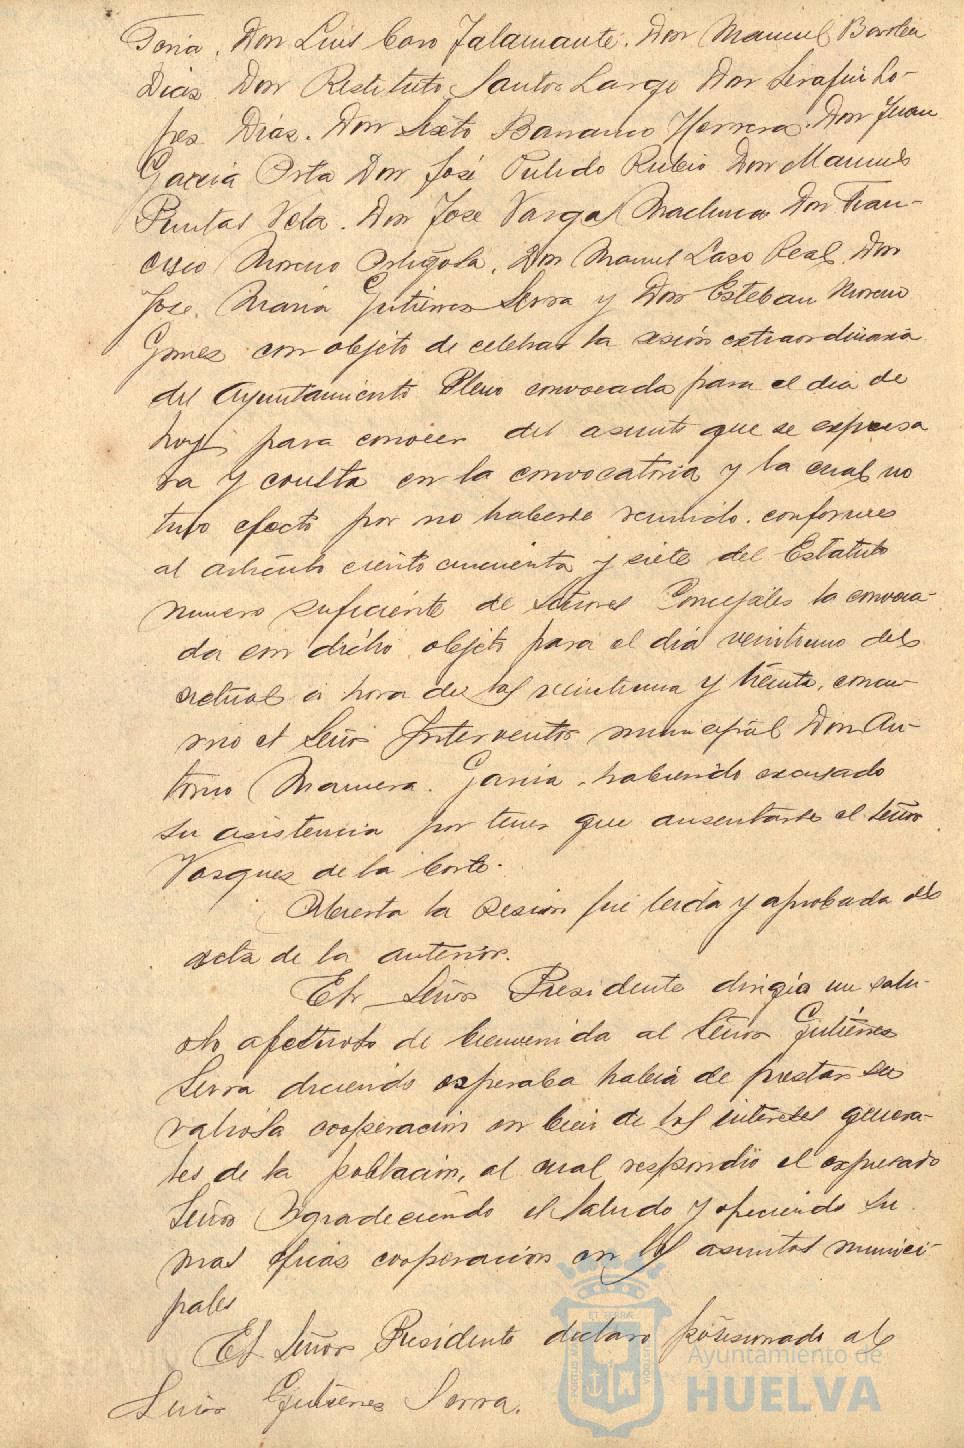 Toria. Don Luis Caro Talamante. Don Manuel Barolea
Dias Don Restituto Santos Largo Don Serafin Lo-
pes Dias. Don Sixto Barranco Herrera. Don Juan
Garcia Orta Don José Pulido Rubio Don Manuel
Puntas Vela. Don Jose Vargas Machuca Don Fran-
cisco Moreno Ortigosa. Don Manuel Laso Real Don
Jose Maria Gutierres Serra y Don Esteban Moreno
Gomes con objeto de celebrar la sesión extraordinaria
del Ayuntamiento Pleno convocada para el dia de
hoy para conocer del asunto que se expresa
ra y consta en la convocatoria y la cual no
tuvo efecto por no haberse reunido conformes
al articulo ciento cincuenta y siete del Estatuto
numero suficiente de Señores Concejales la convoca-
da con dicho objeto para el dia veintiuno del
actual a hora de las veintiuna y treinta, concu-
rrio el Señor Interventor municipal Don An-
tonio Manera Garcia, habiendo excusado
su asistencia por tener que ausentarse el Señor
Vasques de la Corte.
Abierta la sesion fué leida y aprobada el
acta de la anterior.
El Señor Presidente dirigia un salu-
do afectuoso de bienvenida al Señor Gutiérres
Serra diciendo esperaba habia de prestar su
valiosa cooperación en bien de los intereses genera-
les de la población, al cual respondio el expresado
Señor Agradeciendo el saludo y ofreciendo su
mas eficas cooperacion en los asuntos munici-
pales
El Señor Presidente declaro posesionado al
Señor Gutierres Serra.
Ayuntamiento de
HUELVA